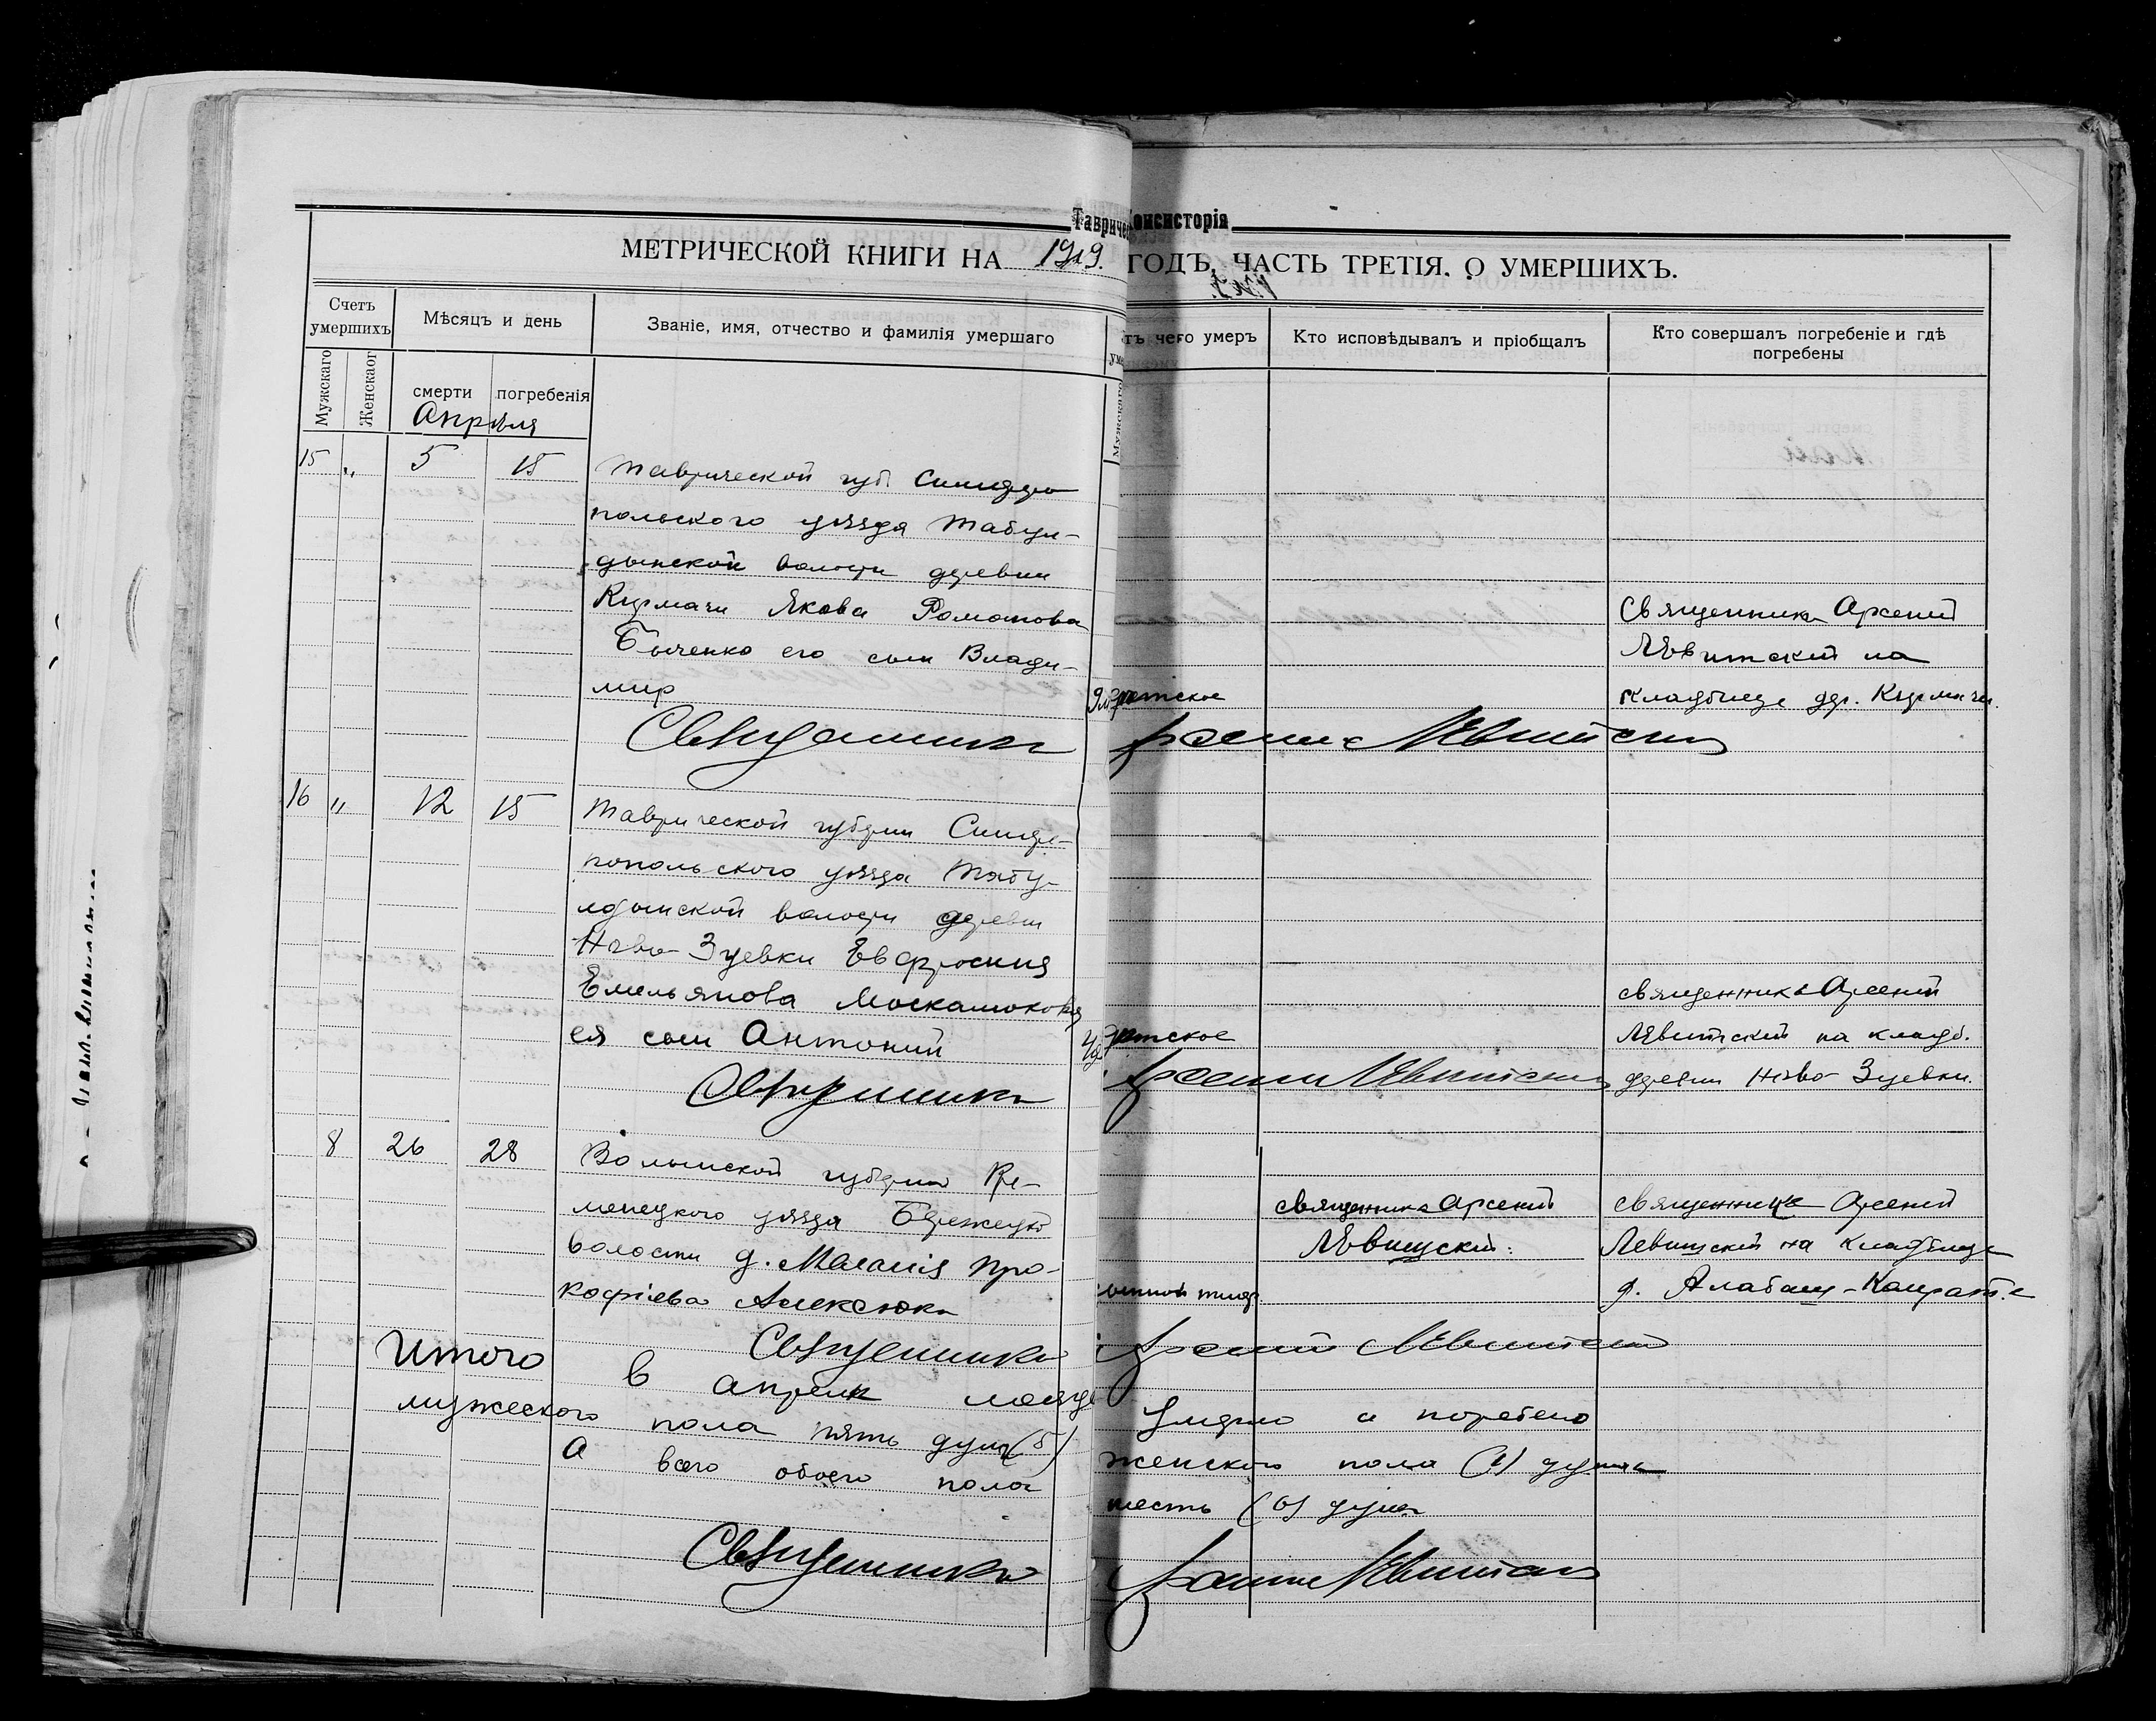 Таврич Консисторія
МЕТРИЧЕСКОЙ КНИГИ НА 1919. ГОДЪ, ЧАСТЬ ТРЕТІЯ. О УМЕРШИХЪ.
Счетъ умершихъ
Мѣсяцъ и день
Званіе, имя, отчество и фамилія умершаго
тъ чего умеръ
Кто исповѣдывалъ и пріобщалъ
Кто совершалъ погребеніе и гдѣ погребены
Мужскаго
Женскаог
смерти
погребенія
Мужскаго
Апрѣля
15 " 5 15
Таврической губ. Симферо
польского уѣзда Табул-
дынской волости деревни
Курмачи Якова Романова
Бытенко его сын Влади-
мир
детское
Священник Арсений
Лѣвитский на
кладбище дер. Курмачи.
Священник Арсений Лѣвитский
16 " 12 15
Таврической губернии Симфе-
ропольского уѣзда Табу-
лдынской волости деревни
Ново-Зуевки Евфросиния
Емельянова
ея сын Антоний
детское
священник Арсений
Лѣвитский на кладб.
деревни Ново-Зуевки.
Священник Арсений Лѣвитский
8 26 28
Волынской губернии Кре-
менецкого уѣзда Бережецкой
волости д. Маланія Про-
кофіева Алексюк
священник Арсений
Лѣвицкий.
священник Арсений
Левицкий на кладбище
д. Алабаш-Конрат.
Священник Арсений Лѣвитский
Итого в апреле месяце умерло и погребено
мужеского пола пять душ (5) женского пола (1) душа
а всего обоего пола шесть (6) душ
Священник Арсений Лѣвитский